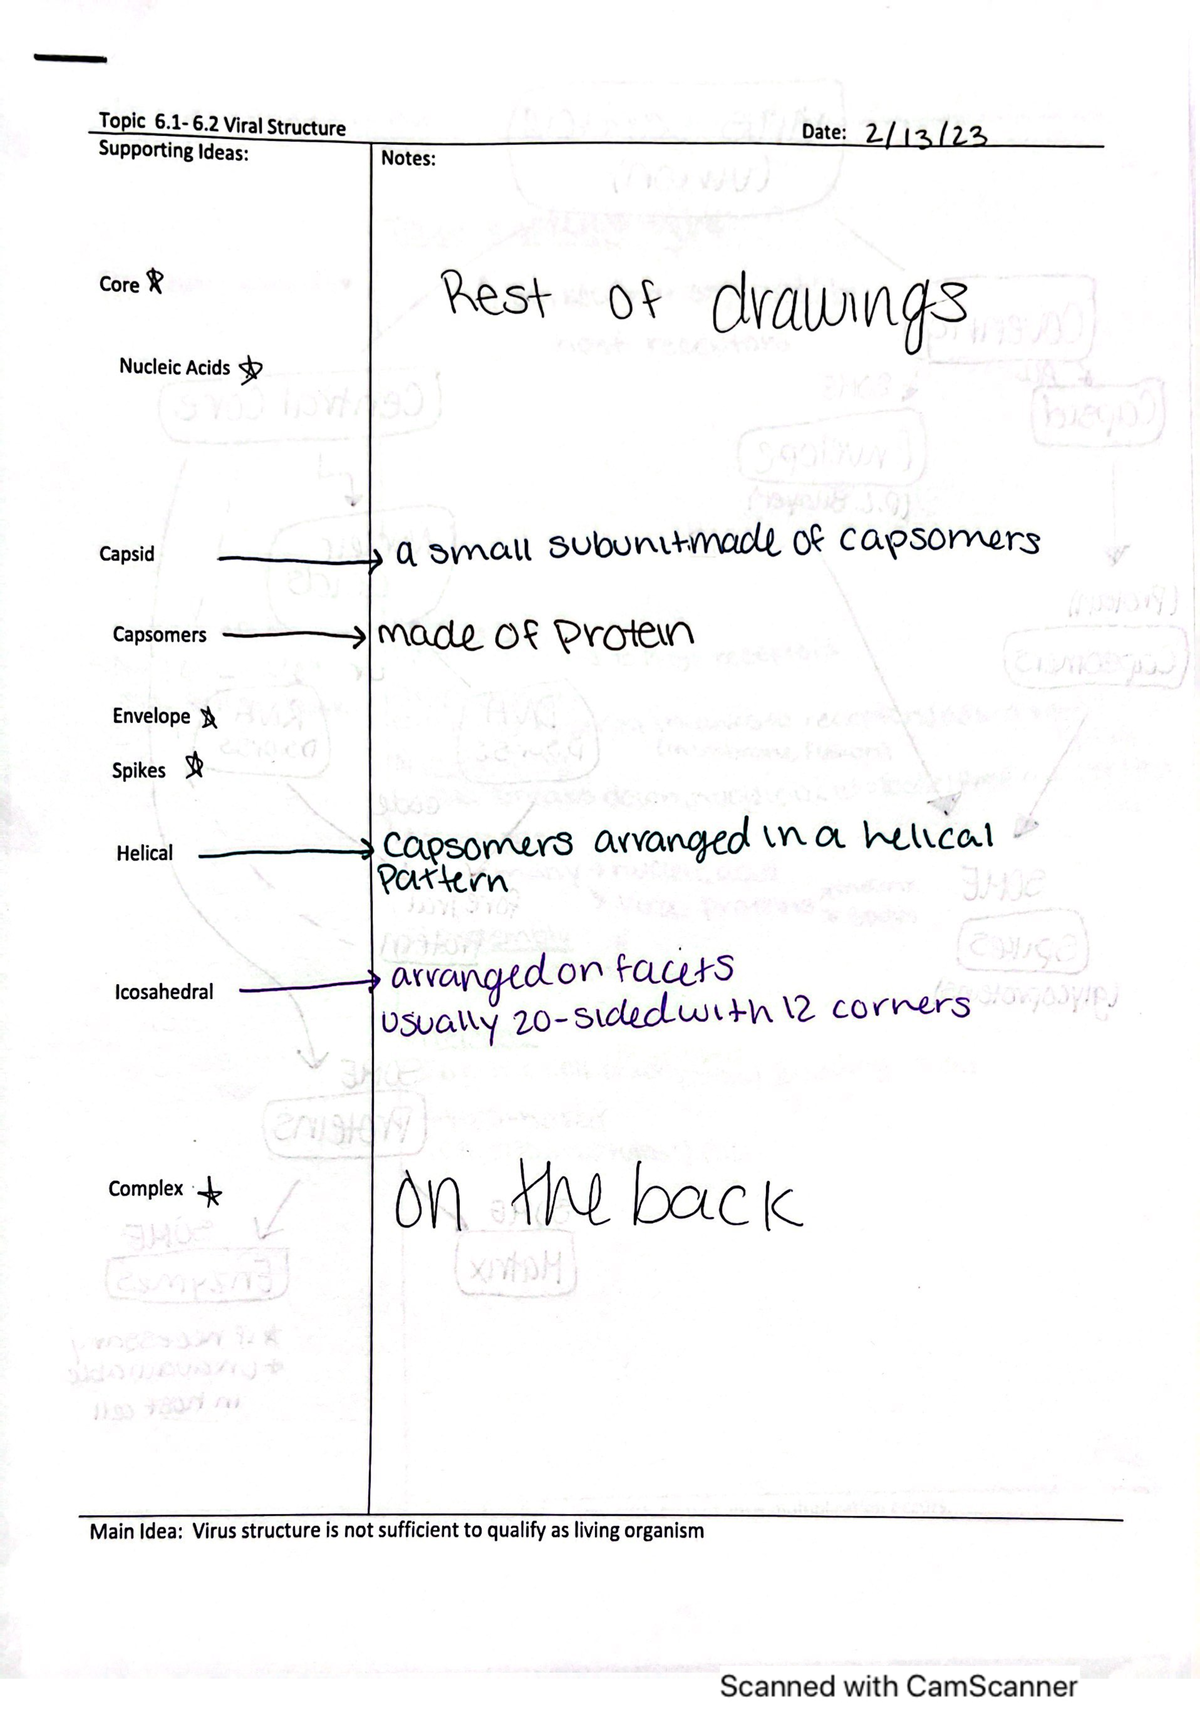 Topic 6.1- 6.2 Viral Structure Date: 2/13/23
Supporting Ideas: Notes:
Core ☆ Rest of drawings
Nucleic Acids ☆
Capsid → a small subunit made of capsomers
Capsomers → made of protein
Envelope ☆
Spikes ☆
Helical → capsomers arranged in a helical
pattern
Icosahedral → arranged on facets
usually 20-sided with 12 corners
Complex ☆ on the back
Main Idea: Virus structure is not sufficient to qualify as living organism
Scanned with CamScanner